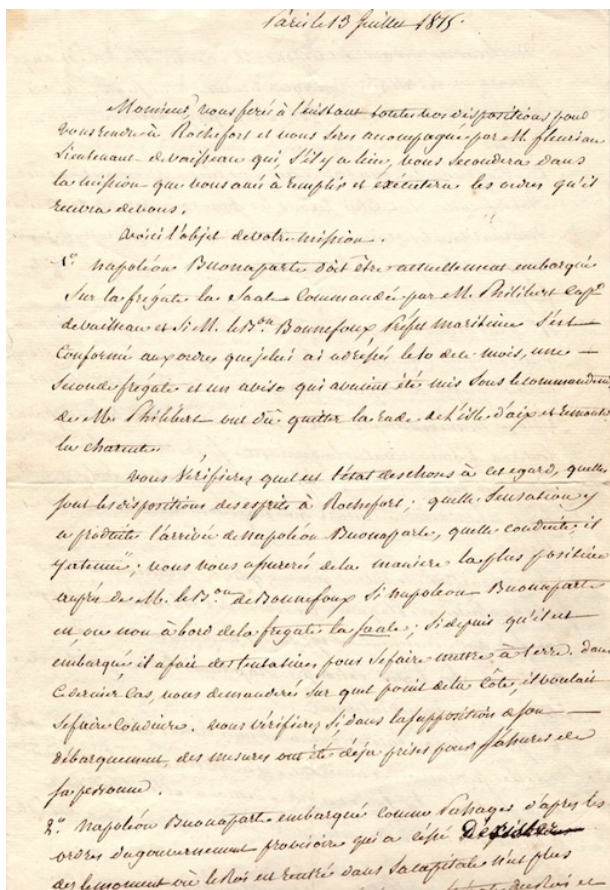 Paris le 13 Juillet 1815.
Monsieur, vous ferés à l'instant toutes vos dispositions pour
vous rendre à Rochefort et vous serés accompagné par M. fleuriau
Lieutenant de vaisseau qui, s'il y a lieu, vous secondera dans
la mission que vous avés à remplir et éxécutera les ordres qu'il
recevra de vous.
Voici l'objet de votre mission.
1º. napoléon Buonaparte doit être actuellement embarqué
Sur la frégate la Saale Commandée par M. Philibert Capne
de vaisseau et Si M. le Bon Bonnefoux Préfet maritime s'est
Conformé aux ordres que je lui ai adressés le 10 de ce mois, une
Seconde frégate et un aviso qui avaient été mis Sous le commandement
de M. Philibert ont dû quitter la Rade de l'isle d'aix et remonté
la charente.
Vous vérifierez quel est l'état des choses à cet égard, quelles
sont les dispositions des esprits à Rochefort; quelle Sensation y
a produite l'arrivée de napoléon Buonaparte, quelle conduite il
y a tenue; vous vous assurerés de la maniere la plus positive
auprès de M. le Bon de Bonnefoux Si napoléon Buonaparte
est, ou non à bord de la frégate la Saale; Si depuis qu'il est
embarqué il a fait des tentatives pour se faire mettre à terre. dans
ce dernier Cas, vous demanderés Sur quel point de la Côte, il voulait
se faire Conduire. Vous vérifierez Si, dans la supposition de son
débarquement, des mesures ont été déja prises pour s'assurer de
sa personne.
2º. napoléon Buonaparte embarqué comme Passager d'après les
ordres du gouvernement provisoire qui a cessé d'exister
dès le moment où le Roi est rentré dans Sa capitale n'est plus